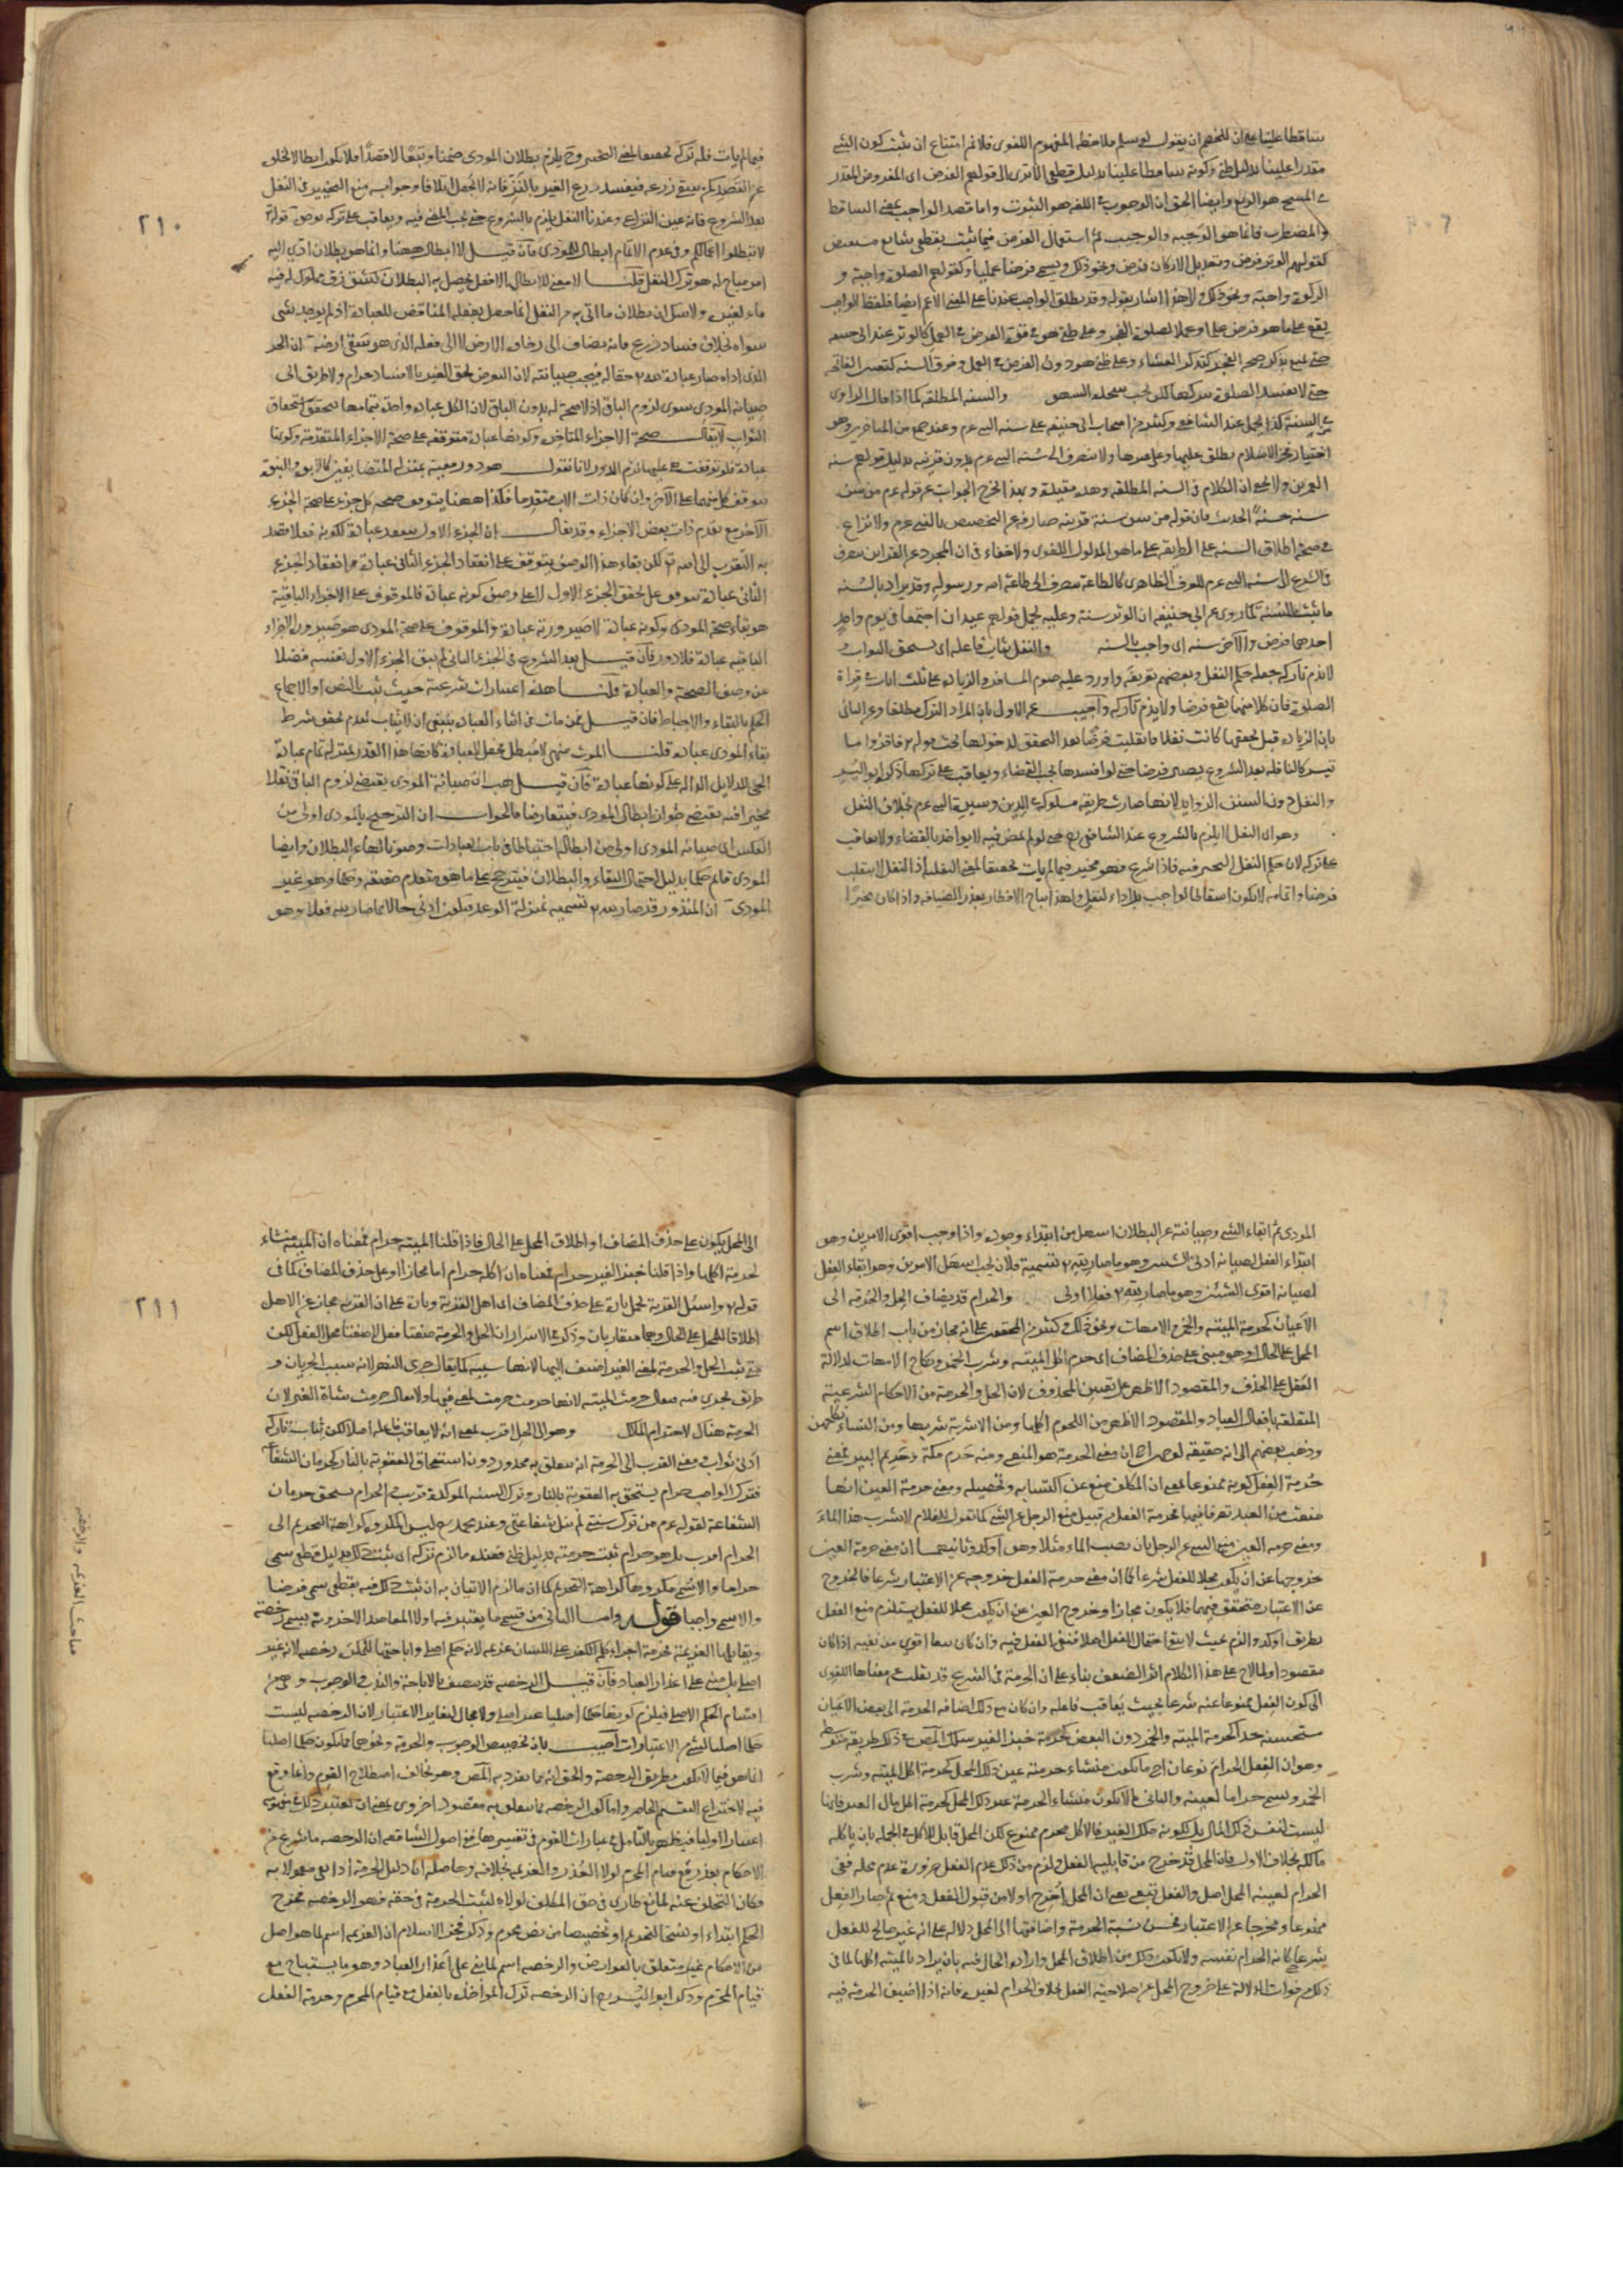 ساقطا علينا على ان للخصم ان يقول لو سلم ملاحظة المفهوم اللغوى فلا نم امتناع ان يثبت كون الشئ
مقدرا علينا بدليل ظنى وكونه ساقطا علينا بدليل قطعى الا ترى الى قولهم الفرض اى المفروض المقدر
فى المسح هو الربع وايضا الحق ان الوجوب فى اللغة هو الثبوت واما مصدر الواجب بمعنى الساقط
والمضطرب فانما هو الوجبة والوجيب ثم استعمال الفرض فيما ثبت بقطعى شايع مستفيض
كقولهم الوتر فرض وتعديل الاركان فرض ونحو ذلك ويسمى فرضا عمليا وكقولهم الصلوة واجبة و
الزكوة واجبة ونحو ذلك والى هذا اشار بقوله وقد يطلق الواجب عندنا على المعنى الاعم ايضا فلفظ الواجب
يقع على ما هو فرض علما وعملا كصلوة الفجر وعلى ظنى هو فى قوة الفرض فى العمل كالوتر عند ابى حنيفة
حتى يمنع تذكره صحة الفجر كتذكر العشاء وعلى ظنى هو دون الفرض فى العمل وفوق السنة كتعيين الفاتحة
حتى لا تفسد الصلوة بتركها لكن تجب سجدة السهو والسنة المطلقة كما اذا قال الراوى
من السنة كذا يحمل عند الشافعى وكثير من اصحاب ابى حنيفة على سنة النبى عم وعند جمع من المتاخرين وهو
اختيار فخر الاسلام يطلق عليها وعلى غيرها ولا ينصرف الى سنة النبى عم بدون قرينة بدليل قولهم سنة
العمرين ولا يخفى ان الكلام فى السنة المطلقة وهذه مقيدة وبهذا يخرج الجواب عن قوله عم من سن
سنة حسنة الحديث فان قوله من سن سنة قرينة صارفة عن التخصيص بالنبى عم ولا نزاع
فى صحة اطلاق السنة على الطريقة على ما هو المدلول اللغوى ولا خفاء فى ان المجرد عن القراين ينصرف
فى الشرع الى سنة النبى عم للعرف الظاهرى كالطاعة ينصرف الى طاعة الله ورسوله وقد يراد بالسنة
ما ثبت بالسنة كما روى عن ابى حنيفة ان الوتر سنة وعليه يحمل قولهم عيدان اجتمعا فى يوم واحد
احدهما فرض والآخر سنة اى واجب بالسنة والنفل يثاب فاعله اى يستحق الثواب و
لا يذم تاركه جعله حكم النفل وبعضهم تعريفه واورد عليه صوم المسافر والزيادة على ثلث ايات فى قراة
الصلوة فان كلا منهما يقع فرضا ولا يذم تاركه واجيب عن الاول بان المراد الترك مطلقا وعن الثانى
بان الزيادة قبل تحققها كانت نفلا فانقلبت فرضا بعد التحقق لدخولها تحت قوله تع فاقرؤا ما
تيسر كالنافلة بعد الشروع يصير فرضا حتى لو افسدها يجب القضاء ويعاقب على تركها ذكره ابو اليسر
والنفل دون السنن الزوايد لانها صارت طريقة مسلوكة فى الدين وسيرة للنبى عم بخلاف النفل
وهو اى النفل لا يلزم بالشروع عند الشافعى رح حتى لو لم يمض فيه لا يواخذ بالقضاء ولا يعاقب
على تركه لان حكم النفل التخيير فيه فاذا شرع فهو مخير فيما لم يات تحقيقا لمعنى النفلية اذ النفل لا ينقلب
فرضا واتمامه لا يكون اسقاطا لواجب بل اداء لنفل ولهذا يباح الافطار بعذر الضيافة واذا كان مخيرا
٢١٠
فيما لم يات فله تركه تحقيقا لمعنى التخيير وح يلزم بطلان المودى ضمنا وتبعا لا قصدا فلا يكون ابطالا لخلوه
عن القصد كمن سقى زرعه فيفسد زرع الغير بالنز فانه لا يجعل اتلافا وجوابه منع التخيير فى النفل
بعد الشروع فانه عين النزاع وعندنا النفل يلزم بالشروع حتى يجب المضى فيه ويعاقب على تركه لوجوه قوله تع
لا تبطلوا اعمالكم وفى عدم الاتمام ابطال للمودى فان قيل لا ابطال ههنا وانما هو بطلان ادى اليه
امر مباح له هو ترك النفل قلنا لا معنى للابطال الا فعل يحصل به البطلان كشق زق مملوك له فيه
ماء لغيره ولا شك ان بطلان ما اتى به من النفل انما حصل بفعله المناقض للعبادة اذ لم يوجد شئ
سواه بخلاف فساد زرع فانه يضاف الى رخاوة الارض لا الى فعله الذى هو سقى ارضه ان الجزء
الذى اداه صار عبادة لله تع حقا له فيجب صيانته لان التعرض لحق الغير بالافساد حرام ولا طريق الى
صيانة المودى سوى لزوم الباقى اذ لا صحة له بدون الباقى لان الكل عبادة واحدة بتمامها يتحقق استحقاق
الثواب لا يقال صحة الاجزاء المتاخرة وكونها عبادة متوقفة على صحة الاجزاء المتقدمة وكونها
عبادة فلو توقفت هى عليها لزم الدور لانا نقول هو دور معية بمنزلة المتضايفين كالابوة والبنوة
يتوقف كل منهما على الآخر وان كان ذات الاب متقدما فكذا ههنا يتوقف صحة كل جزء على صحة الجزء
الآخر مع تقدم ذات بعض الاجزاء وقد يقال ان الجزء الاول ينعقد عبادة لكونه فعلا قصد
به التقرب الى الله تع لكن بقاء هذا الوصف يتوقف على انعقاد الجزء الثانى عبادة وانعقاد الجزء
الثانى عبادة يتوقف على تحقق الجزء الاول لا على وصف كونه عبادة فالموقوف على الاجزاء الباقية
هو بقاء صحة المودى وكونه عبادة لا صيرورته عبادة والموقوف على صحة المودى هو صيرورة الاجزاء
الباقية عبادة فلا دور فان قيل بعد الشروع فى الجزء الثانى لم يبق الجزء الاول نفسه فضلا
عن وصف الصحة والعبادة قلنا هذه اعتبارات شرعية حيث ثبت بالنص او الاجماع
الحكم بالبقاء والاحباط فان قيل فمن مات فى اثناء العبادة ينبغى ان لا يثاب لعدم تحقق شرط
بقاء المودى عبادة قلنا الموت منهى لا مبطل فجعل العبادة كانها هذا القدر بمنزلة تمام عبادة
الحى للدلايل الدالة على كونها عبادة فان قيل هب ان صيانة المودى يقتضى لزوم الباقى نفلا
مخيرا فيه يقتضى جواز ابطال المودى فيتعارضا فالجواب ان الترجيح بالمودى اولى من
العكس اى صيانة المودى اولى من ابطاله احتياطا فى باب العبادات وصونا لها عن البطلان وايضا
المودى قايم حكما بدليل احتمال البقاء والبطلان فيترجح على ما هو منعدم حقيقة وحكما وهو غير
المودى ان المنذور قد صار لله تع تسمية بمنزلة الوعد فيكون ادنى حالا مما صار لله فعلا وهو
المودى ثم ابقاء الشئ وصيانته عن البطلان اسهل من ابتداء وجوده واذا وجب اقوى الامرين وهو
ابتداء الفعل لصيانة ادنى الشيئين وهو ما صار لله تع تسمية فلان يجب اسهل الامرين وهو ابقاء الفعل
لصيانة اقوى الشيئين وهو ما صار لله تع فعلا اولى والحرام قد يضاف الحل والحرمة الى
الاعيان كحرمة الميتة والخمر والامهات ونحو ذلك وكثير من المحققين على انه مجاز من باب اطلاق اسم
المحل على الحال او هو مبنى على حذف المضاف اى حرم اكل الميتة وشرب الخمر ونكاح الامهات لدلالة
العقل على الحذف والمقصود الاظهر على تعيين المحذوف لان الحل والحرمة من الاحكام الشرعية
المتعلقة بافعال العباد والمقصود الاظهر من اللحوم اكلها ومن الاشربة شربها ومن النساء نكاحهن
وذهب بعضهم الى انه حقيقة لوجهين احدهما ان معنى الحرمة هو المنع ومنه حرم مكة وحريم البير فمعنى
حرمة الفعل كونه ممنوعا بمعنى ان المكلف منع عن اكتسابه وتحصيله ومعنى حرمة العين انها
منعت من العبد تصرفا فيها فحرمة الفعل من قبيل منع الرجل عن الشئ كما تقول للغلام لا تشرب هذا الماء
ومعنى حرمة العين منع الشئ عن الرجل بان يصب الماء مثلا وهو اوكد وثانيهما ان معنى حرمة العين
خروجها عن ان يكون محلا للفعل شرعا كما ان معنى حرمة الفعل خروجه عن الاعتبار شرعا فالخروج
عن الاعتبار متحقق فيهما فلا يكون مجازا وخروج العين عن ان يكون محلا للفعل يستلزم منع الفعل
بطريق اوكد والزم بحيث لا يبقى احتمال الفعل اصلا فنفى الفعل فيه وان كان تبعا اقوى من نفيه اذا كان
مقصودا ولما لاح على هذا الكلام اثر الضعف بناء على ان الحرمة فى الشرع قد نقلت عن معناها اللغوى
الى كون الفعل ممنوعا عنه شرعا بحيث يعاقب فاعله وان كان مع ذلك اضافة الحرمة الى بعض الاعيان
مستحسنة جدا كحرمة الميتة والخمر دون البعض كحرمة خبز الغير سلك المص فى ذلك طريقة متوسطة
وهو ان الفعل الحرام نوعان احدهما يكون منشاء حرمته عين ذلك المحل كحرمة اكل الميتة وشرب
الخمر ويسمى حراما لعينه والثانى ما لا يكون منشاء الحرمة عين ذلك المحل كحرمة اكل مال الغير فانها
ليست لنفس ذلك المال بل لكونه ملك الغير فالاكل محرم ممنوع لكن المحل قابل للاكل فى الجملة بان ياكله
مالكه بخلاف الاول فان المحل قد خرج من قابلية الفعل ولزم من ذلك عدم الفعل ضرورة عدم محله ففى
الحرام لعينه المحل اصل والفعل تبع بمعنى ان المحل اخرج اولا من قبول الفعل ومنع ثم صار الفعل
ممنوعا ومخرجا عن الاعتبار فحسن نسبة الحرمة واضافتها الى المحل دلالة على انه غير صالح للفعل
شرعا كانه الحرام نفسه ولا يكون ذلك من اطلاق المحل وارادة الحال فيه بان يراد بالميتة اكلها لما فى
ذلك من فوات الدلالة على خروج المحل عن صلاحية الفعل بخلاف الحرام لغيره فانه اذا اضيف الحرمة فيه
٢١١
الى المحل يكون على حذف المضاف او اطلاق المحل على الحال فاذا قلنا الميتة حرام فمعناه ان الميتة منشاء
لحرمة اكلها واذا قلنا خبز الغير حرام فمعناه ان اكله حرام اما مجازا او على حذف المضاف كما فى
قوله تع واسئل القرية يحمل تارة على حذف المضاف اى اهل القرية وتارة على ان القرية مجاز عن الاهل
اطلاقا للمحل على الحال وهما متقاربان وذكر فى الاسرار ان الحل والحرمة صفتا فعل لا صفتا محل الفعل لكن
متى ثبت الحل والحرمة لمعنى العين اضيف اليها لانها سببه كما يقال جرى النهر لانه سبب الجريان و
طريق يجرى فيه فيقال حرمت الميتة لانها حرمت لمعنى فيها ولا يقال حرمت شاة الغير لان
الحرمة هنالك لاحترام المالك وهو الى الحل اقرب بمعنى انه لا يعاقب فاعله اصلا لكن يثاب تاركه
ادنى ثواب ومعنى القرب الى الحرمة انه يتعلق به محذور دون استحقاق العقوبة بالنار كحرمان الشفاعة
فترك الواجب حرام يستحق به العقوبة بالنار وترك السنة الموكدة قريب من الحرام يستحق حرمان
الشفاعة لقوله عم من ترك سنتى لم ينل شفاعتى وعند محمد رح ليس المكروه كراهة التحريم الى
الحرام اقرب بل هو حرام ثبت حرمته بدليل ظنى فعنده ما لزم تركه ان ثبت ذلك بدليل قطعى يسمى
حراما والا يسمى مكروها كراهة التحريم كما ان ما لزم الاتيان به ان ثبت ذلك فيه بقطعى يسمى فرضا
والا يسمى واجبا قوله واما الثانى من قسمى ما يعتبر فيه اولا المقاصد الاخروية يسمى رخصة
ويقابلها العزيمة فحرمة اجراء كلمة الكفر على اللسان عزيمة لانه حكم اصلى واباحتها للمكره رخصة لانه غير
اصلى بل مبنى على اعذار العباد فان قيل الرخصة قد يتصف بالاباحة والندب والوجوب وهى من
اقسام الحكم الاصلى فيلزم كونها حكما اصليا غير اصلى ولا مجال لتغاير الاعتبار لان الرخصة ليست
حكما اصليا لشئ من الاعتبارات اجيب بان تخصيص الوجوب والحرمة ونحوهما بما يكون حكما اصليا
انما هو فيما لا يكون بطريق الرخصة والحق انه مما تفرد به المص وهو مخالف اصطلاح القوم وانما وقع
فيه لاختراع التقسيم الحاصر واما كون الرخصة مما يتعلق به مقصود اخروى بمعنى ان يعتبر ذلك فى مفهومه
اعتبارا اوليا فيظهر بالتامل فى عبارات القوم فى تفسيرها ففى اصول الشافعية ان الرخصة ما شرع من
الاحكام بعذر مع قيام المحرم لولا العذر والعزيمة بخلافه وحاصله ان دليل الحرمة اذا بقى معمولا به
وكان التخلف عنه لمانع طارى فى حق المكلف لولاه لثبت الحرمة فى حقه فهو الرخصة فخرج
الحكم ابتداء او نسخا لتحريم او تخصيصا من نص محرم وذكر فخر الاسلام ان العزيمة اسم لما هو اصل
من الاحكام غير متعلق بالعوارض والرخصة اسم لما بنى على اعذار العباد وهو ما يستباح مع
قيام المحرم وذكر ابو اليسر رح ان الرخصة ترك المواخذة بالفعل مع قيام المحرم وحرمة الفعل
مباحث العزيمة والرخصة